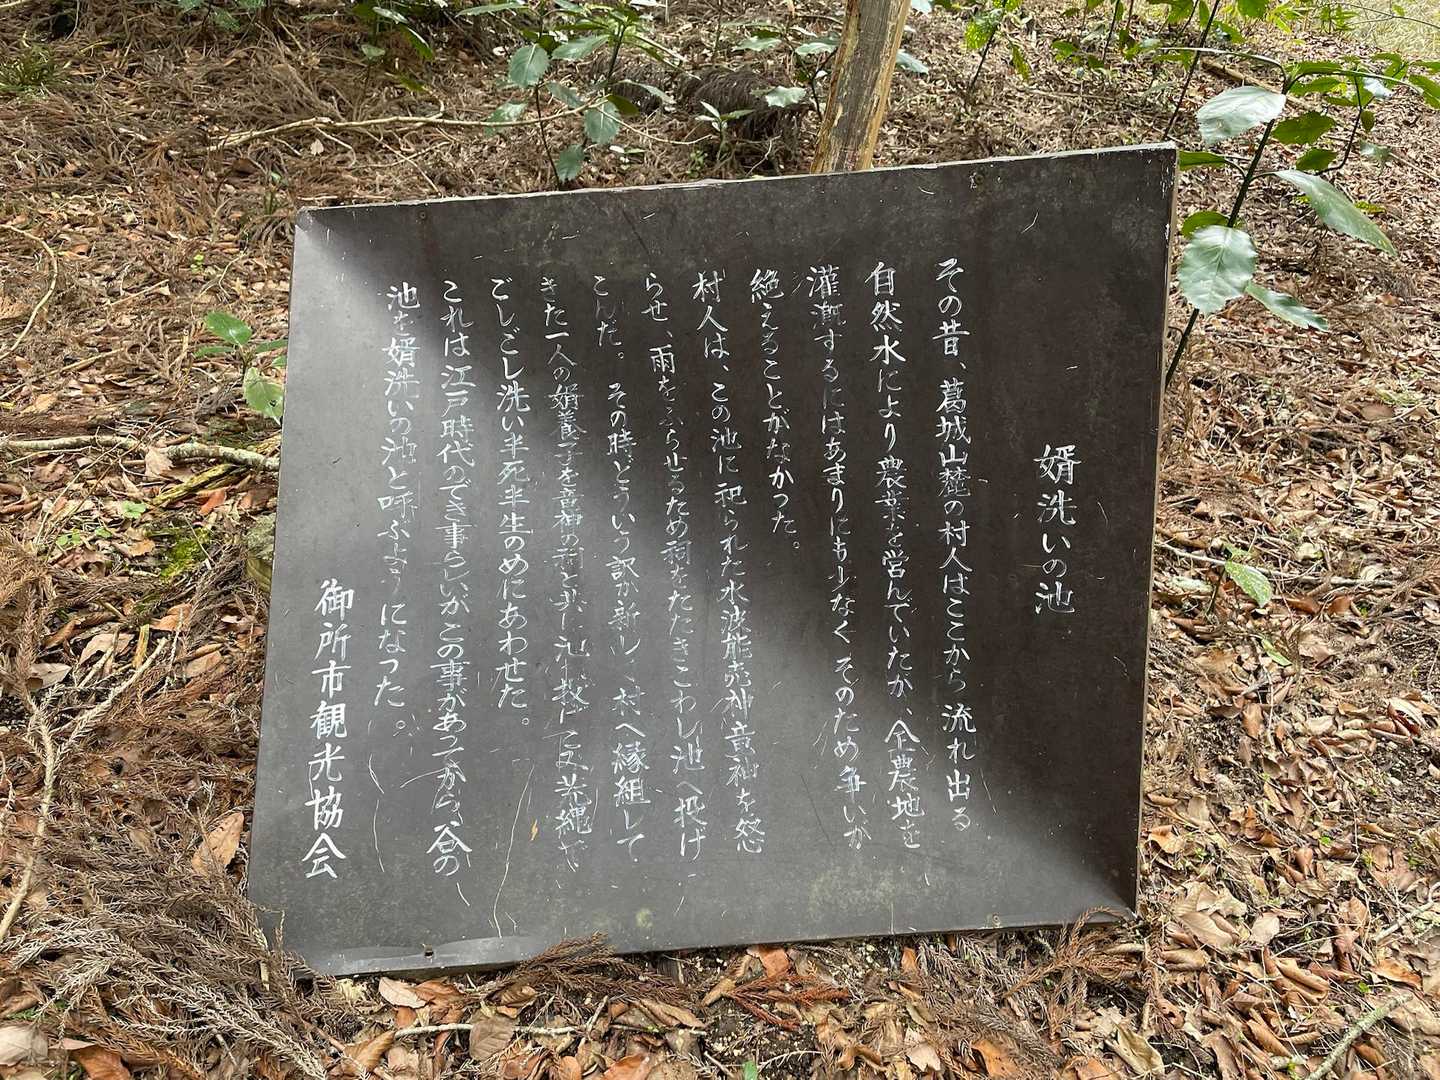 婿洗いの池
その昔、葛城山麓の村人はここから流れ出る
自然水により農業を営んでいたが、全農地を
灌漑するにはあまりにも少なく そのため争いが
絶えることがなかった。
村人は、この池に祀られた水波能売神竜神を怒
らせ、雨をふらせるため祠をたたきこわし池へ投げ
こんだ。 その時どういう訳か新しく村へ縁組して
きた一人の婿養子を竜神の祠と共に池に投げこみ荒縄で
ごしごし洗い半死半生のめにあわせた。
これは江戸時代のでき事らしいがこの事があってから、谷の
池を婿洗いの池と呼ぶようになった。
御所市観光協会